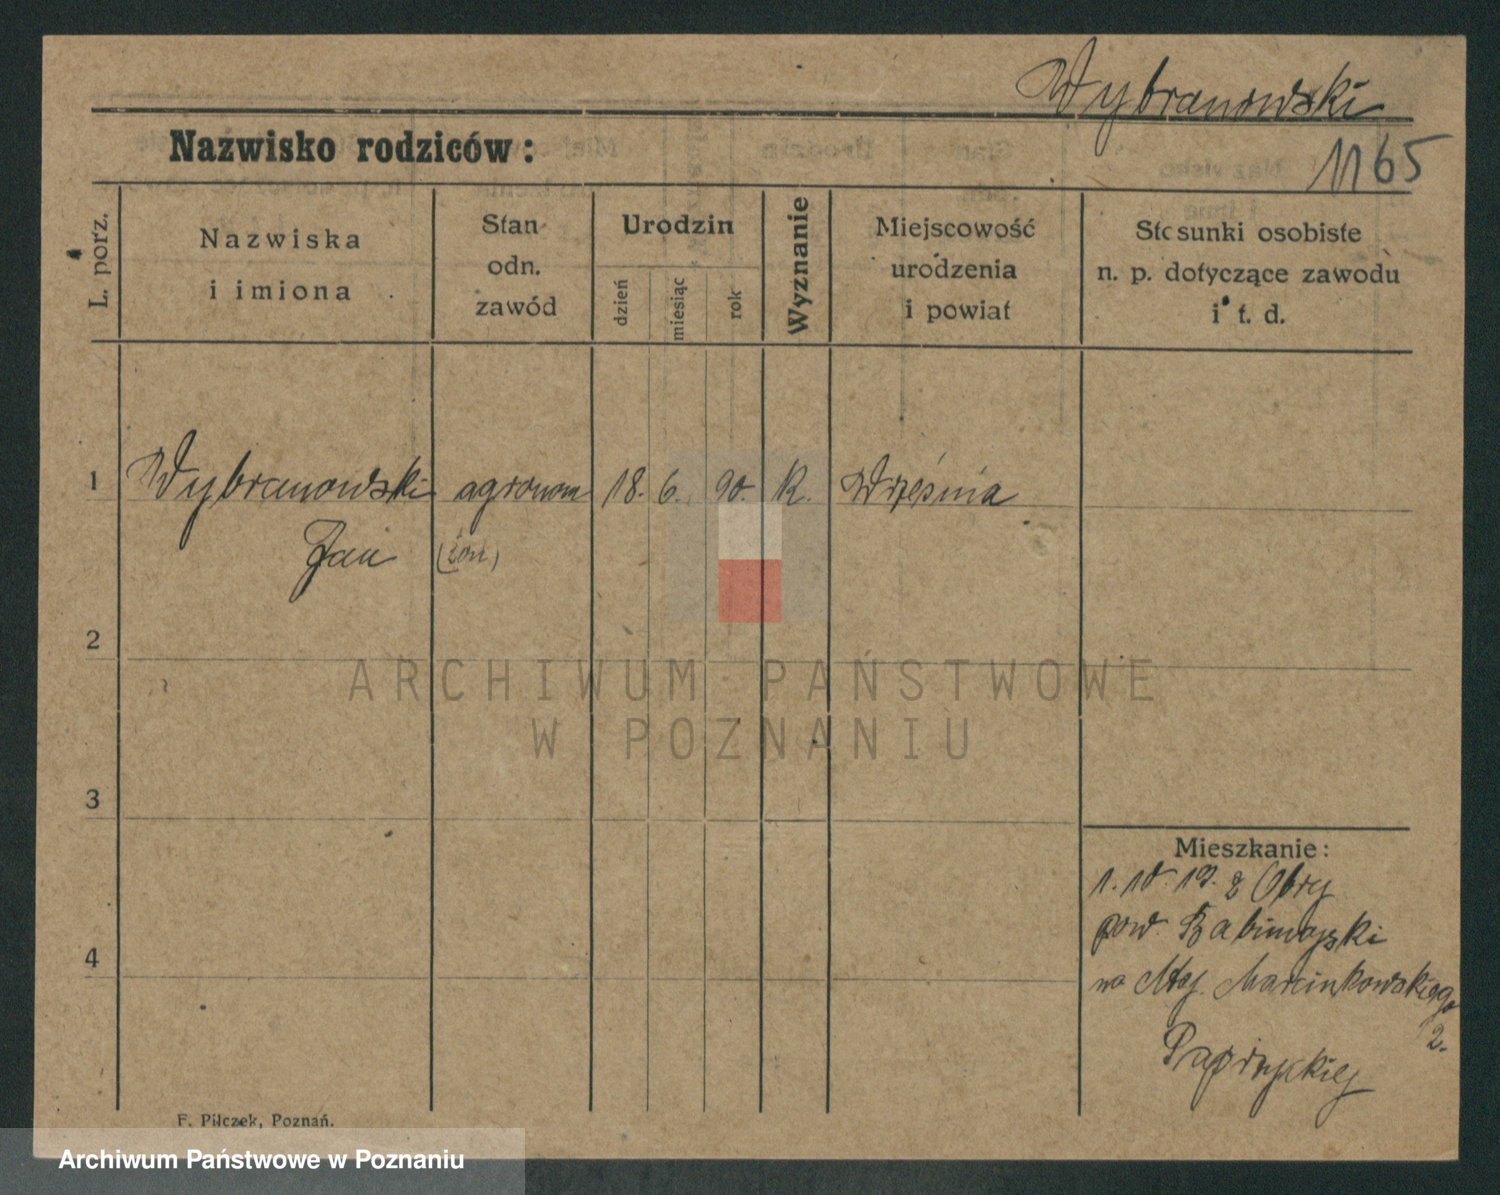 Wybranowski
Nazwisko rodziców:
1165
L. porz.
Nazwiska
i imiona
Stan
odn.
zawód
Urodzin
dzień
miesiąc
rok
Wyznanie
Miejscowość
urodzenia
i powiat
Stosunki osobiste
n. p. dotyczące zawodu
i t. d.
1 Wybranowski agronom 18. 6. 90. K. Września
Jan (żon)
2
3
4
Mieszkanie:
1. 10. 19. z Obry
pow. Babimojski
na Marcinkowskiego
2.
F. Pilczek, Poznań.
ARCHIWUM PAŃSTWOWE
W POZNANIU
Archiwum Państwowe w Poznaniu